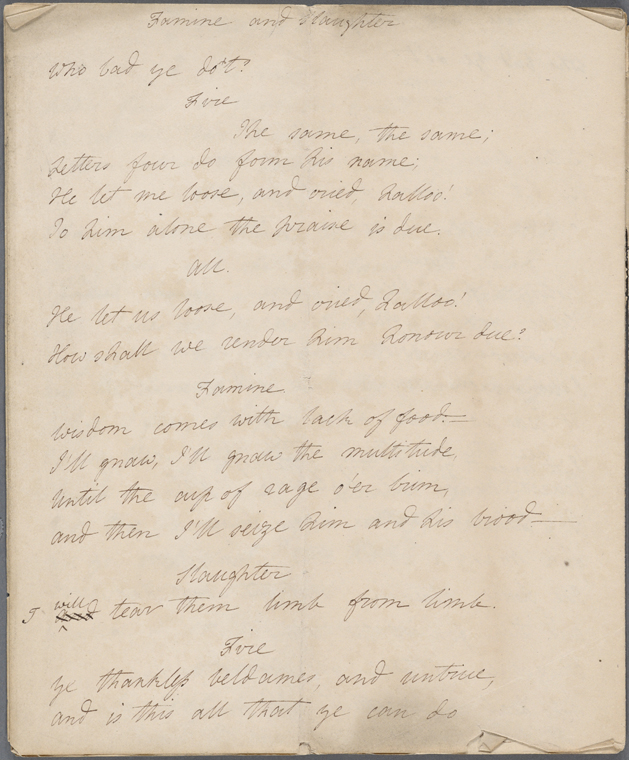 Famine and Slaughter
Who bad ye do't?
Fire
The same, the same;
Letters four do form his name;
He let me loose, and cried, Halloo!
To him alone the praise is due.
All.
He let us loose, and cried, Halloo!
How shall we render him honour due?
Famine.
Wisdom comes with lack of food.—
I'll gnaw, I'll gnaw the multitude,
Until the cup of rage o'er brim,
and then I'll seize him and his brood—
Slaughter
I will tear them limb from limb.
Fire
Ye thankless beldames, and untrue,
and is this all that ye can do